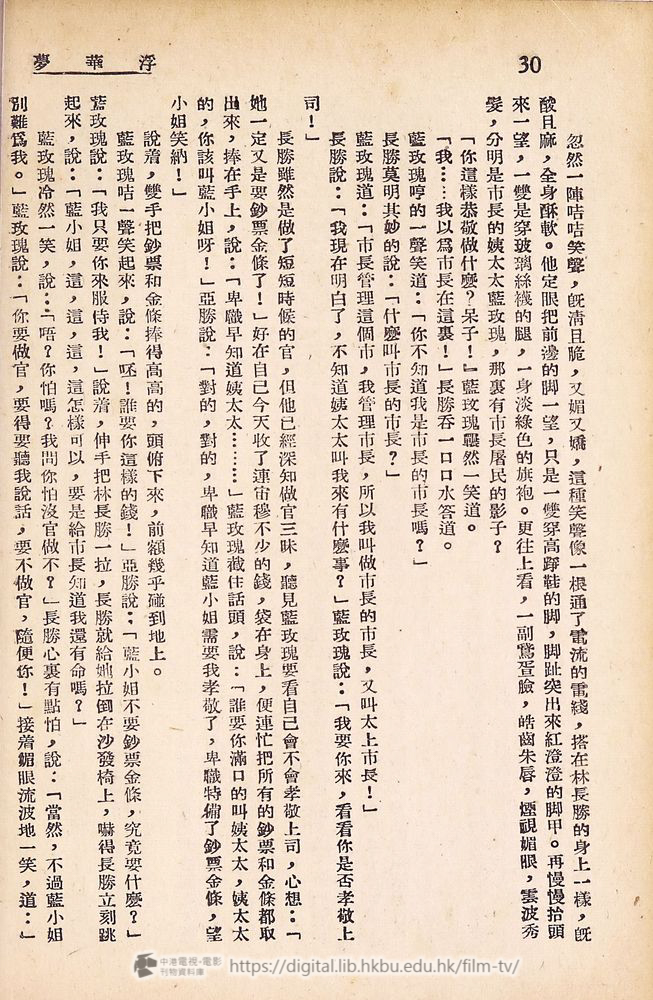 30
浮華夢
忽然一陣咭咭笑聲，旣清且脆，又媚又嬌，這種笑聲像一根通了電流的電綫，搭在林長勝的身上一樣，旣
酸且麻，全身酥軟。他定眼把前邊的脚一望，只是一雙穿高踭鞋的脚，脚趾突出來紅澄澄的脚甲。再慢慢抬頭
來一望，一雙是穿玻璃絲襪的腿，一身淡綠色的旗袍。更往上看，一副鵞蛋臉，皓齒朱唇，煙視媚眼，雲波秀
髮，分明是市長的姨太太藍玫瑰，那裏有市長屠民的影子？
「你這樣恭敬做什麼？呆子！」藍玫瑰囅然一笑道。
「我……我以爲市長在這裏！」長勝吞一口口水答道。
藍玫瑰哼的一聲笑道：「你不知道我是市長的市長嗎？」
長勝莫明其妙的說：「什麼叫市長的市長？」
藍玫瑰道：「市長管理這個市，我管理市長，所以我叫做市長的市長，又叫太上市長！」
長勝說：「我現在明白了，不知道姨太太叫我來有什麼事？」藍玫瑰說：「我要你來，看看你是否孝敬上
司！」
長勝雖然是做了短短時候的官，但他已經深知做官三昧，聽見藍玫瑰要看自己會不會孝敬上司，心想：「
她一定又是要鈔票金條了！」好在自己今天收了連宙穆不少的錢，袋在身上，便連忙把所有的鈔票和金條都取
出來，捧在手上，說：「卑職早知道姨太太………」藍玫瑰截住話頭，說：「誰要你滿口的叫姨太太，姨太太
的，你該叫藍小姐呀！」亞勝說：「對的，對的，卑職早知道藍小姐需要我孝敬了，卑職特備了鈔票金條，望
小姐笑納！」
說着，雙手把鈔票和金條捧得高高的，頭俯下來，前額幾乎碰到地上。
藍玫瑰咭一聲笑起來，說：「呸！誰要你這樣的錢！」亞勝說：「藍小姐不要鈔票金條，究竟要什麼？」
藍玫瑰說：「我只要你來服侍我！」說着，伸手把林長勝一拉，長勝就給她拉倒在沙發椅上，嚇得長勝立刻跳
起來，說：「藍小姐，這，這，這怎樣可以，要是給市長知道我還有命嗎？」
藍玫瑰冷然一笑，說：「唔？你怕嗎？我問你怕沒官做不？」長勝心裏有點怕，說：「當然，不過藍小姐
別難爲我。」藍玫瑰說：「你要做官，要得要聽我說話，要不做官，隨便你！」接着媚眼流波地一笑，道：」
中港電視・電影
刊物資料庫
https://digital.lib.hkbu.edu.hk/film-tv/